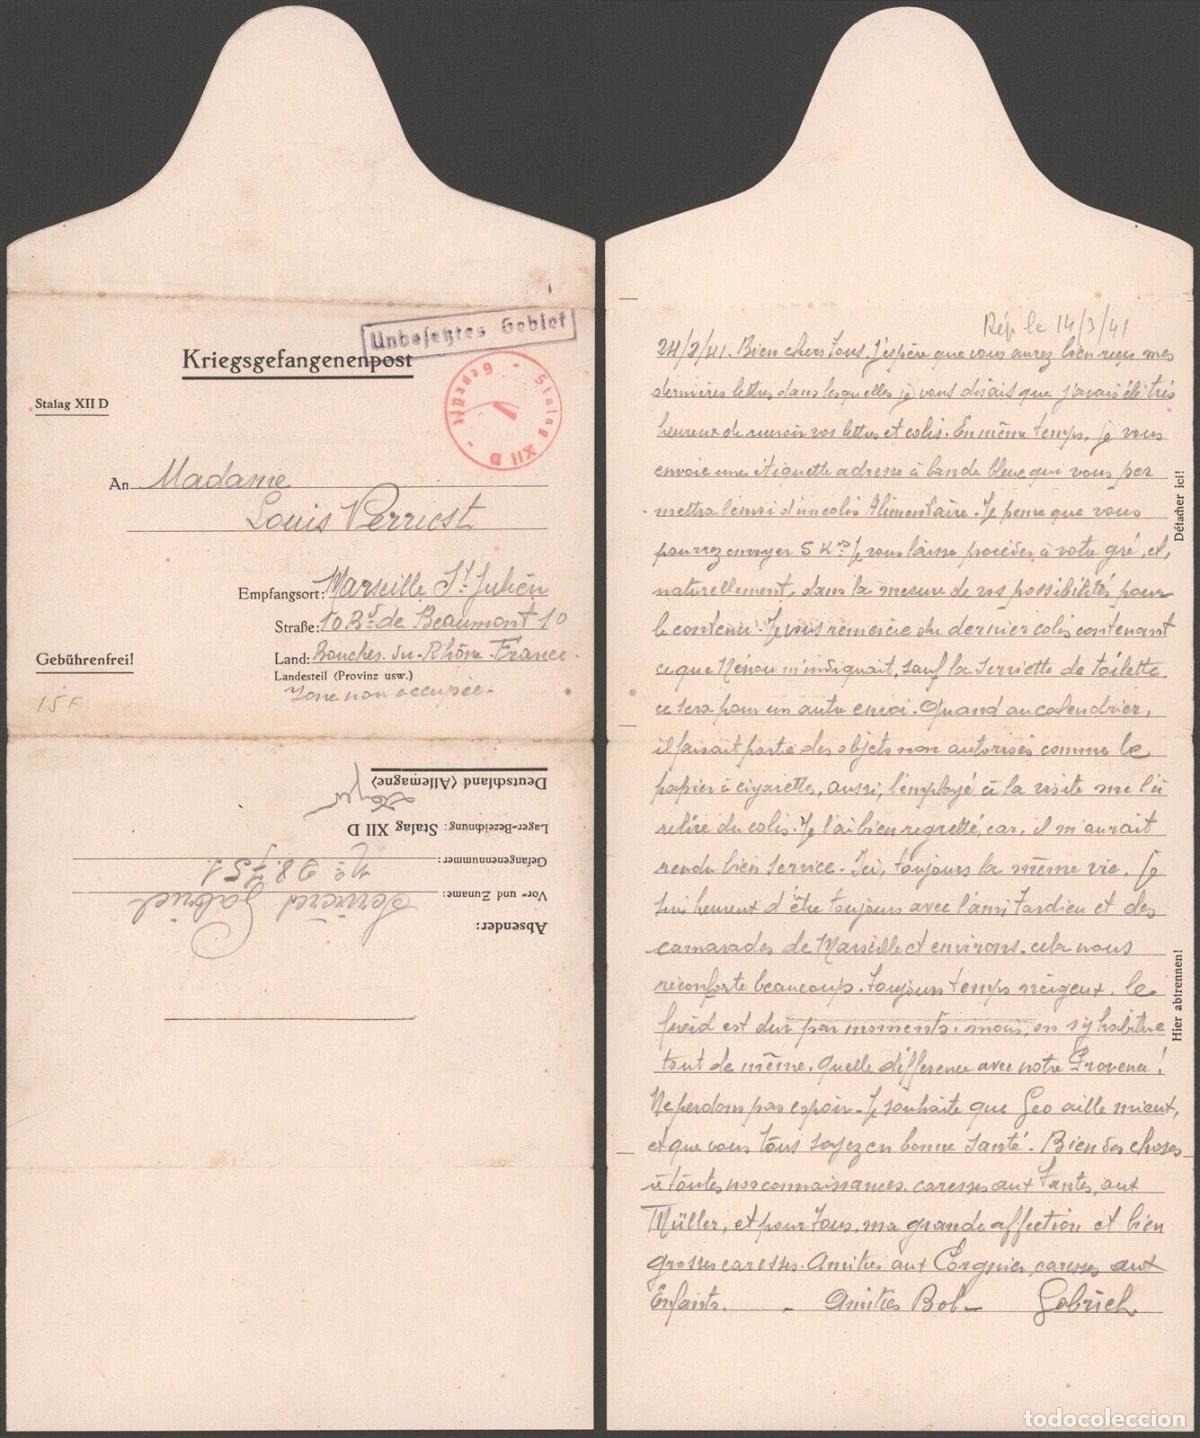 Unbesetztes Gebiet
Kriegsgefangenenpost
Stalag XII D
Stalag XII D - Geprüft -
1
An Madame
Louis Verriest
Empfangsort: Marseille St Julien
Straße: 10 Bd de Beaumont 10
Gebührenfrei!
Land: Bouches-du-Rhône-France-
Landesteil (Provinz usw.)
Zone non occupée-
15F
Deutschland (Allemagne)
Lager-Bezeichnung: Stalag XII D
Gefangenennummer: No 98.751
Vor- und Zuname: Gabriel
Absender:
Rép le 14/3/41
24/2/41. Bien chers Tous. J'espère que vous aurez bien reçu mes
dernières lettres dans lesquelles je vous disais que j'avais été très
heureux de recevoir vos lettres et colis. En même temps, je vous
envoie une étiquette adresse à bande bleue qui vous per
-mettra l'envoi d'un colis Alimentaire. Je pense que vous
pourrez envoyer 5 Kgs Je vous laisse procéder à votre gré, et,
naturellement, dans la mesure de vos possibilités pour
le contenu. Je vous remercie du dernier colis contenant
ce que Nénou m'indiquait, sauf la serviette de toilette
ce sera pour un autre envoi. Quand au calendrier,
il faisait partie des objets non autorisés comme le
papier à cigarettes, aussi, l'employé à la visite me l'a
retiré du colis. Je l'ai bien regretté, car, il m'aurait
rendu bien service. Ici, toujours la même vie. Je
suis heureux d'être toujours avec l'ami Tardieu et des
camarades de Marseille et environs. cela nous
réconforte beaucoup. Toujours temps neigeux. le
froid est dur par moments, mais, on s'y habitue
tout de même. quelle différence avec notre Provence!
Ne perdons pas espoir. Je souhaite que Geo aille mieux,
et que vous tous soyez en bonne santé. Bien des choses
à toutes nos connaissances. caresses aux Tantes, aux
Müller, et pour Tous, ma grande affection et bien
grosses caresses. Amitiés aux caresses aux
Enfants. - Amitiés Bob - Gabriel
Détacher ici!
Hier abtrennen!
todocoleccion